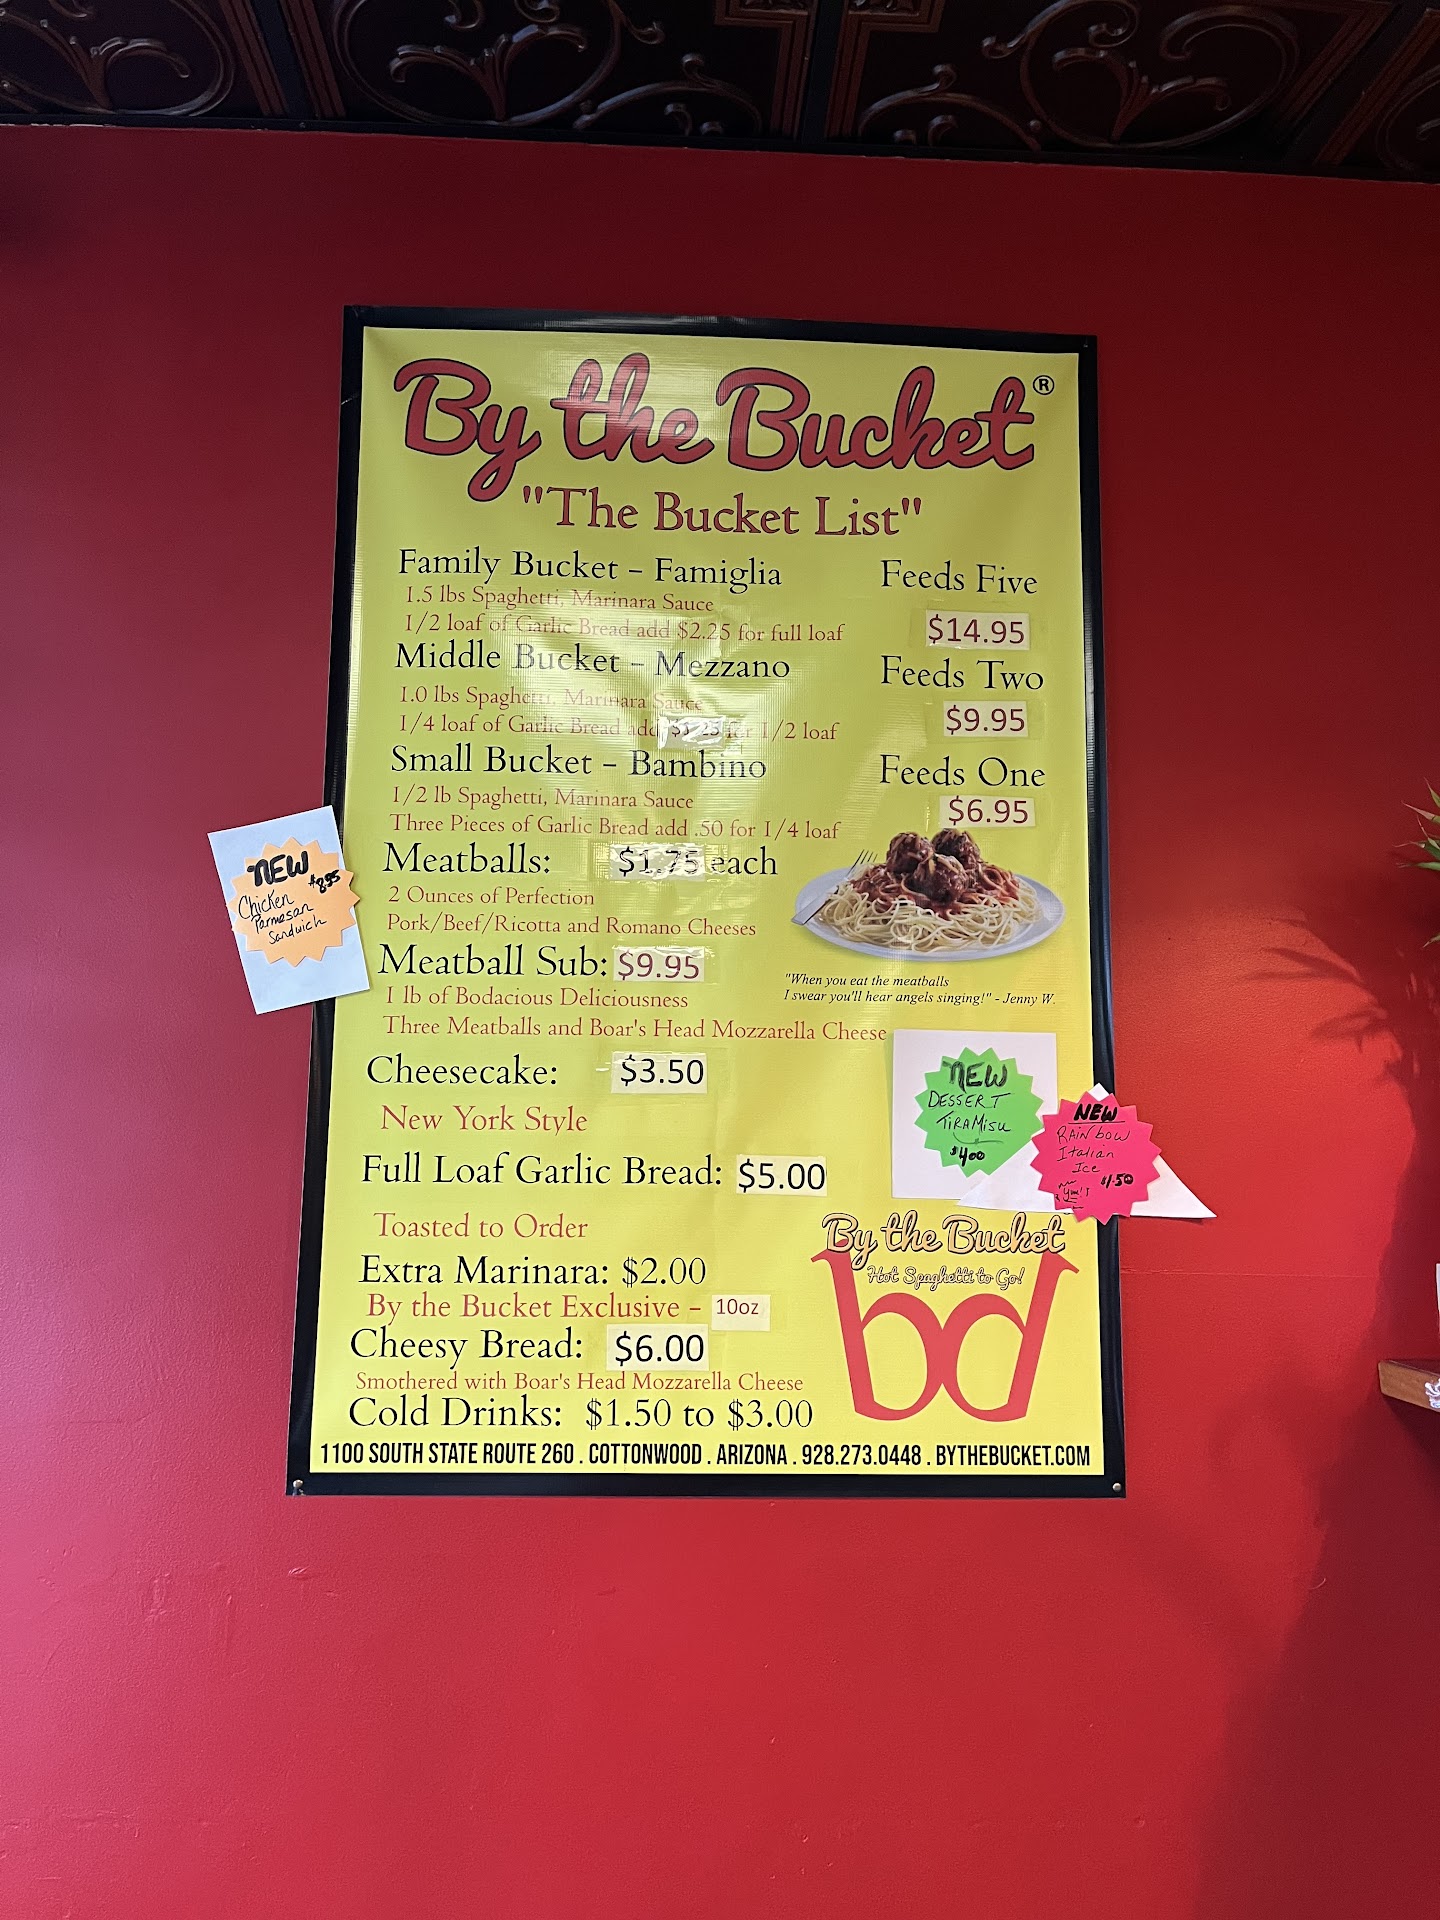 By the Bucket®
"The Bucket List"
Family Bucket - Famiglia Feeds Five
1.5 lbs Spaghetti, Marinara Sauce
1/2 loaf of Garlic Bread add $2.25 for full loaf $14.95
Middle Bucket - Mezzano Feeds Two
1.0 lbs Spaghetti, Marinara Sauce $9.95
1/4 loaf of Garlic Bread add $1.25 for 1/2 loaf
Small Bucket - Bambino Feeds One
1/2 lb Spaghetti, Marinara Sauce $6.95
Three Pieces of Garlic Bread add .50 for 1/4 loaf
Meatballs: $1.75 each
2 Ounces of Perfection
Pork/Beef/Ricotta and Romano Cheeses
Meatball Sub: $9.95
1 lb of Bodacious Deliciousness
Three Meatballs and Boar's Head Mozzarella Cheese
"When you eat the meatballs
I swear you'll hear angels singing!" - Jenny W.
Cheesecake: $3.50
New York Style
Full Loaf Garlic Bread: $5.00
Toasted to Order
Extra Marinara: $2.00
By the Bucket Exclusive - 10oz
Cheesy Bread: $6.00
Smothered with Boar's Head Mozzarella Cheese
Cold Drinks: $1.50 to $3.00
1100 SOUTH STATE ROUTE 260 . COTTONWOOD . ARIZONA . 928.273.0448 . BYTHEBUCKET.COM
NEW
$8.95
Chicken
Parmesan
Sandwich
NEW
DESSERT
TIRAMISU
$4.00
NEW
RAINbOW
Italian
Ice
$1.50
By the Bucket
Hot Spaghetti to Go!
bd